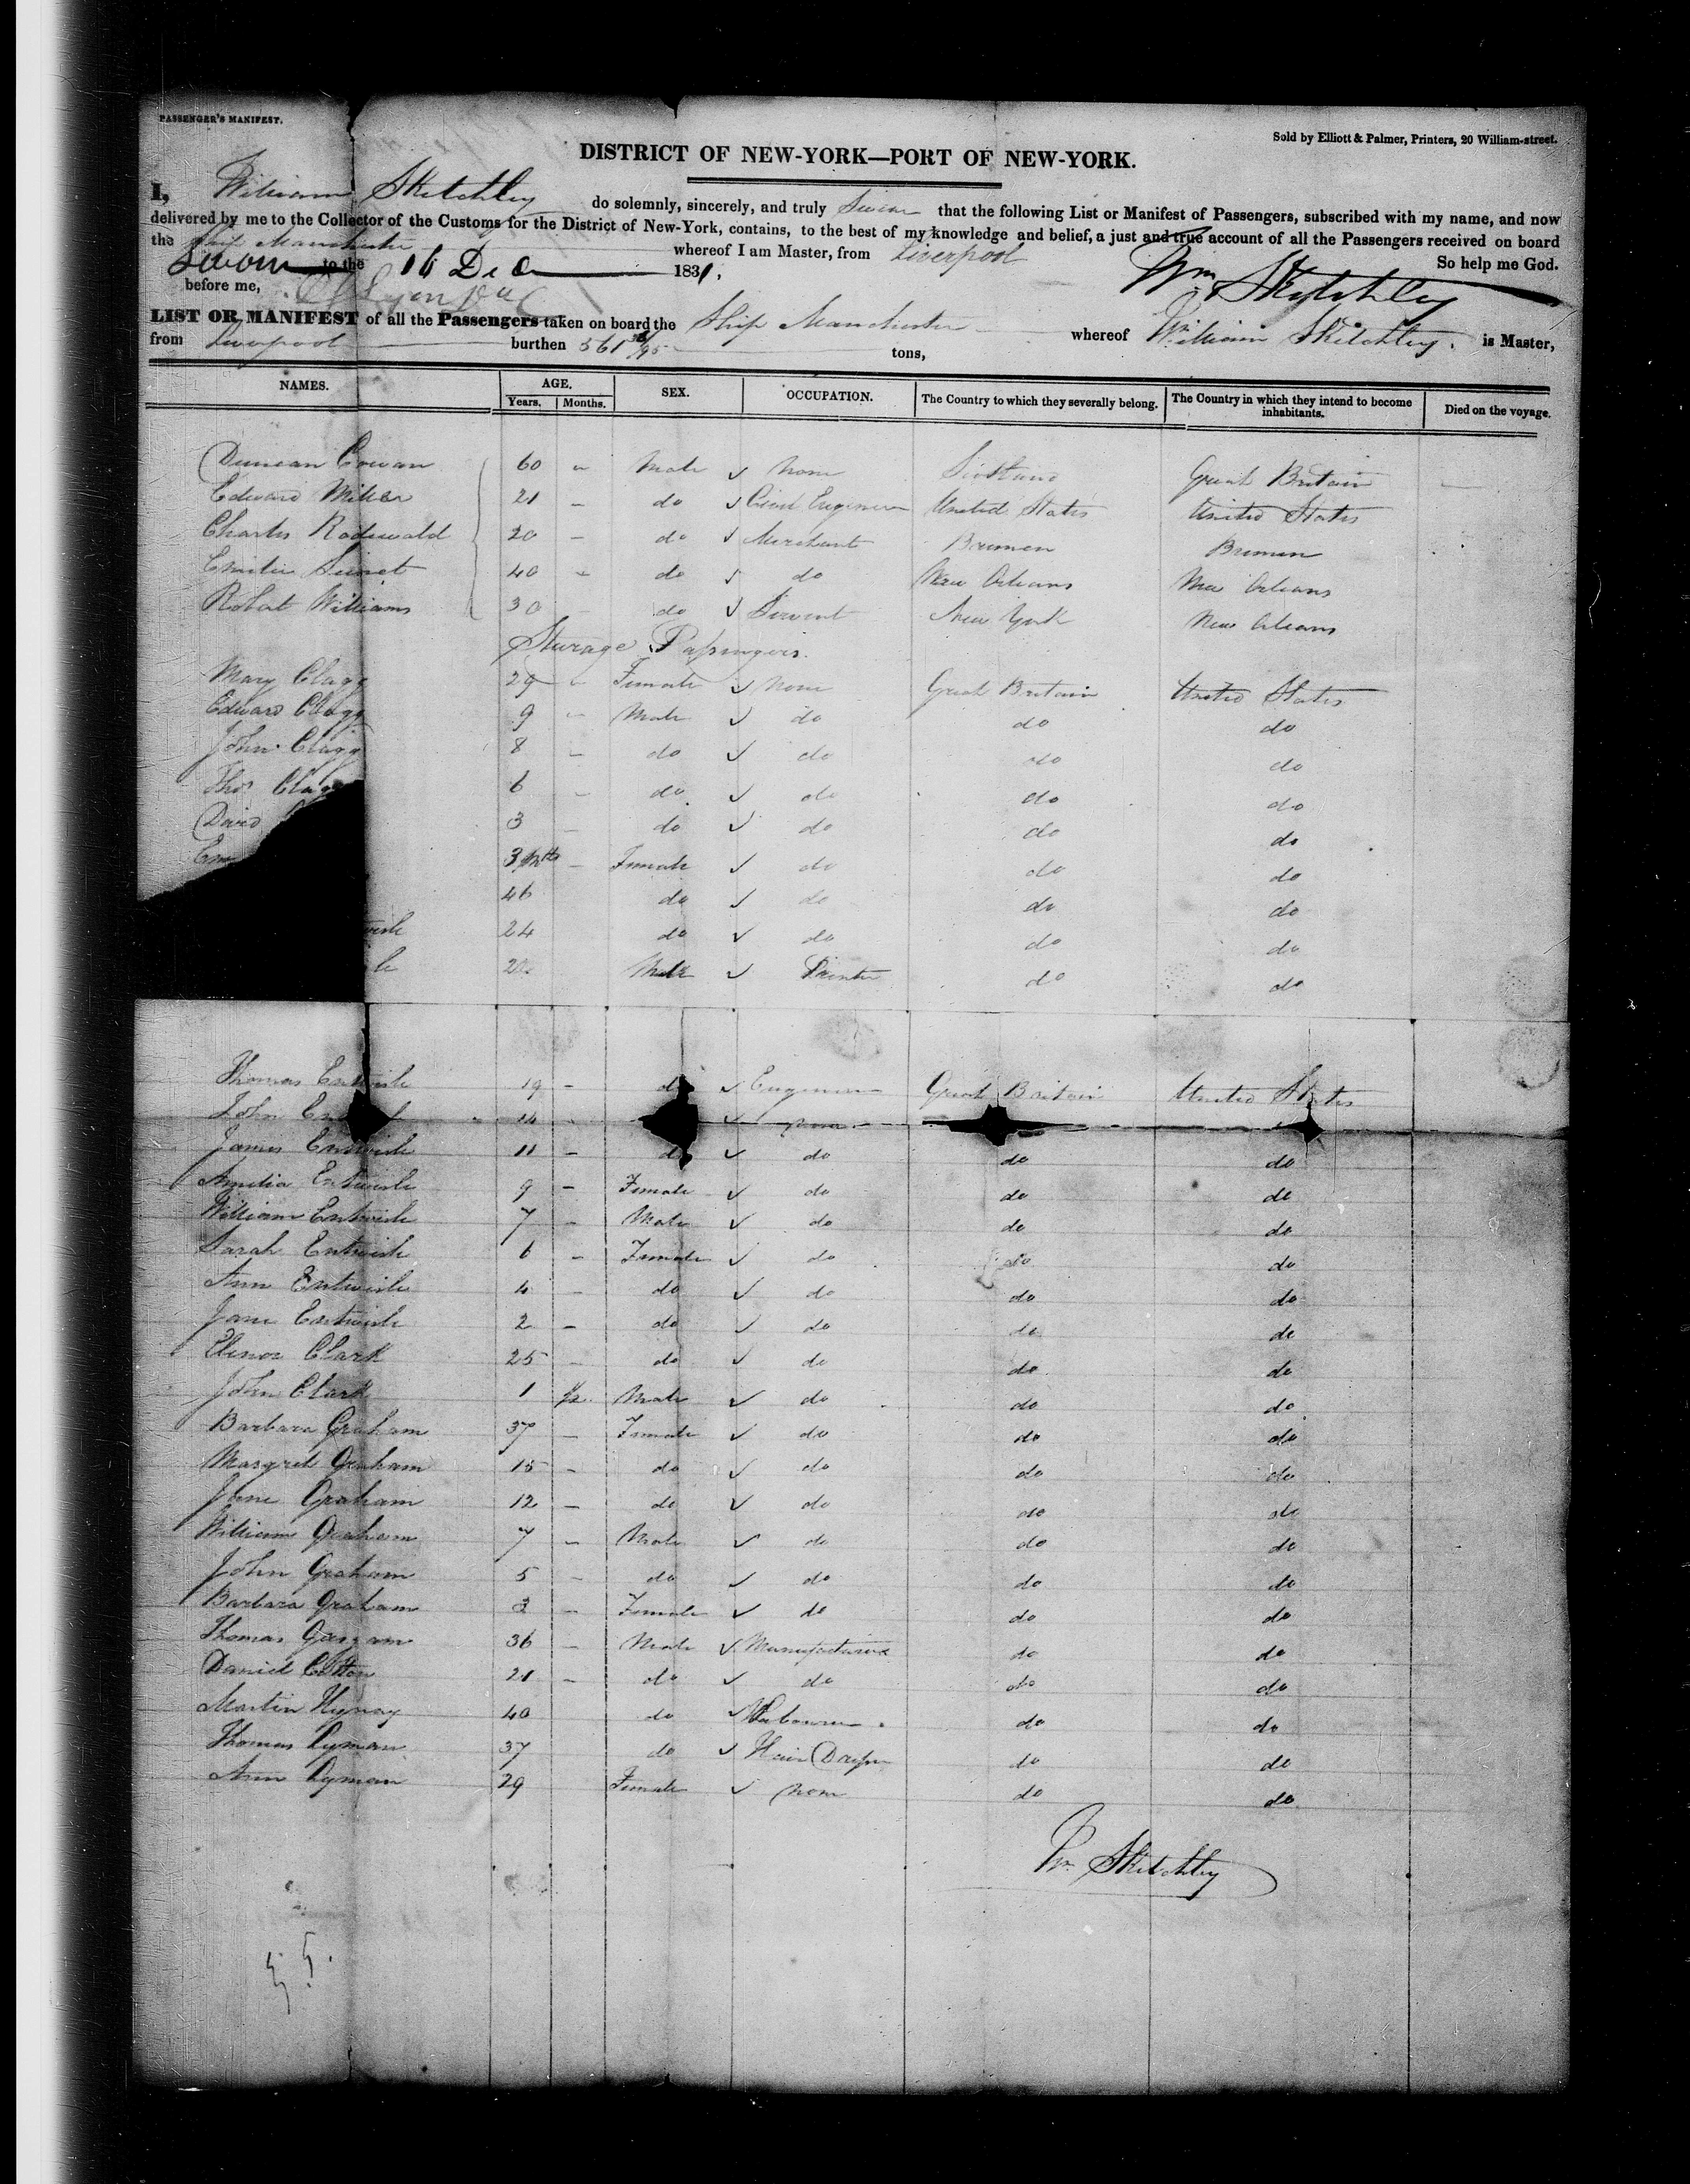 PASSENGER'S MANIFEST.
Sold by Elliott & Palmer, Printers, 20 William-street.
DISTRICT OF NEW-YORK—PORT OF NEW-YORK.
I, William Sketchley do solemnly, sincerely, and truly Swear that the following List or Manifest of Passengers, subscribed with my name, and now
delivered by me to the Collector of the Customs for the District of New-York, contains, to the best of my knowledge and belief, a just and true account of all the Passengers received on board
the Ship Manchester whereof I am Master, from Liverpool So help me God.
Sworn to the 16 Dec 1831, Wm Sketchley
before me,
LIST OR MANIFEST of all the Passengers taken on board the Ship Manchester whereof William Sketchley is Master,
from Liverpool burthen 561 tons,
NAMES. AGE. Years. Months. SEX. OCCUPATION. The Country to which they severally belong. The Country in which they intend to become inhabitants. Died on the voyage.
Duncan Cowan 60 " Male ✓ None Scotland Great Britain —
Edward Miller 21 - do ✓ Civil Engineer United States United States
Charles Rodewald 20 - do ✓ Merchant Bremen Bremen
40 - do ✓ do New Orleans New Orleans
Robert Williams 30 - do ✓ Servent New York New Orleans
Sturage Passengers
Mary Clagg 29 " Female ✓ None Great Britain United States
Edward Clagg 9 - Male ✓ do do do
John Clagg 8 - do ✓ do do do
Thos Clag 6 - do ✓ do do do
David 3 - do ✓ do do do
Em 3 Mths - Female ✓ do do do
46 do ✓ do do do
wisle 24 do ✓ do do do
le Male ✓ Printer do do
Thomas Entwisle 19 - do ✓ Engineer Great Britain United States
John En 14 - ✓ none
James Entwisle 11 - do ✓ do do do
Amelia Entwisle 9 - Female ✓ do do do
William Entwisle 7 - Male ✓ do do do
Sarah Entwisle 6 - Female ✓ do do do
Ann Entwisle 4 - do ✓ do do do
Jane Entwisle 2 - do ✓ do do do
Elenor Clark 25 - do ✓ do do do
John Clark 1 ½ Male ✓ do do do
Barbara Graham 37 - Female ✓ do do do
Margret Graham 15 - do ✓ do do do
Jane Graham 12 - do ✓ do do do
William Graham 7 - Male ✓ do do do
John Graham 5 - do ✓ do do do
Barbara Graham 3 - Female ✓ do do do
Thomas 36 - Male ✓ Manufacturer do do
Daniel Cotton 21 - do ✓ do do do
Martin 40 do ✓ Labourer do do
Thomas Lyman 37 do ✓ Hair do do
Ann Lyman 29 Female ✓ None do do
Wm Sketchley